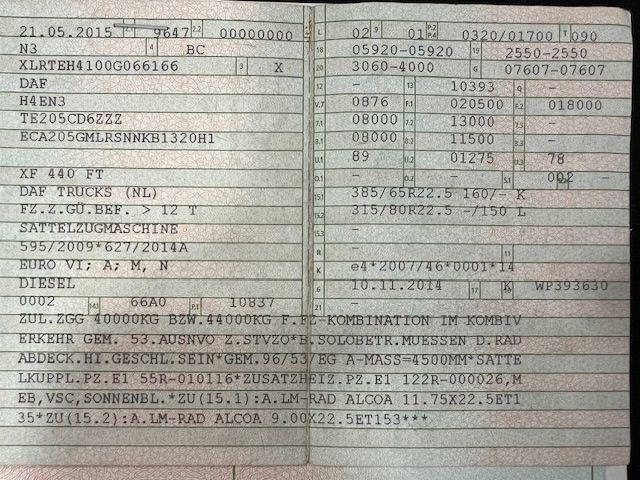 21.05.2015 2.1 9647 2.2 00000000
N3 4 BC
XLRTEH4100G066166 3 X
DAF
H4EN3
TE205CD6ZZZ
ECA205GMLRSNNKB1320H1
XF 440 FT
DAF TRUCKS (NL)
FZ.Z.GÜ.BEF. > 12 T
SATTELZUGMASCHINE
595/2009*627/2014A
EURO VI; A; M, N
DIESEL
0002 14.1 66A0 P.1 10837
L 02 9 01 P.2 P.4 0320/01700 T 090
18 05920-05920 19 2550-2550
20 3060-4000 G 07607-07607
12 - 13 10393 Q -
V.7 0876 F.1 020500 F.2 018000
7.1 08000 7.2 13000 7.3 -
8.1 08000 8.2 11500 8.3 -
U.1 89 U.2 01275 U.3 78
O.1 - O.2 - S.1 002 -
15.1 385/65R22.5 160/- K
15.2 315/80R22.5 -/150 L
15.3 -
R - 11
K e4*2007/46*0001*14
6 10.11.2014 17 K WP393630
21 -
ZUL.ZGG 40000KG BZW.44000KG F.FZ-KOMBINATION IM KOMBIV
ERKEHR GEM. 53.AUSNVO Z.STVZO*B.SOLOBETR.MUESSEN D.RAD
ABDECK.HI.GESCHL.SEIN*GEM.96/53/EG A-MASS=4500MM*SATTE
LKUPPL.PZ.E1 55R-010116*ZUSATZHEIZ.PZ.E1 122R-000026,M
EB,VSC,SONNENBL.*ZU(15.1):A.LM-RAD ALCOA 11.75X22.5ET1
35*ZU(15.2):A.LM-RAD ALCOA 9.00X22.5ET153***